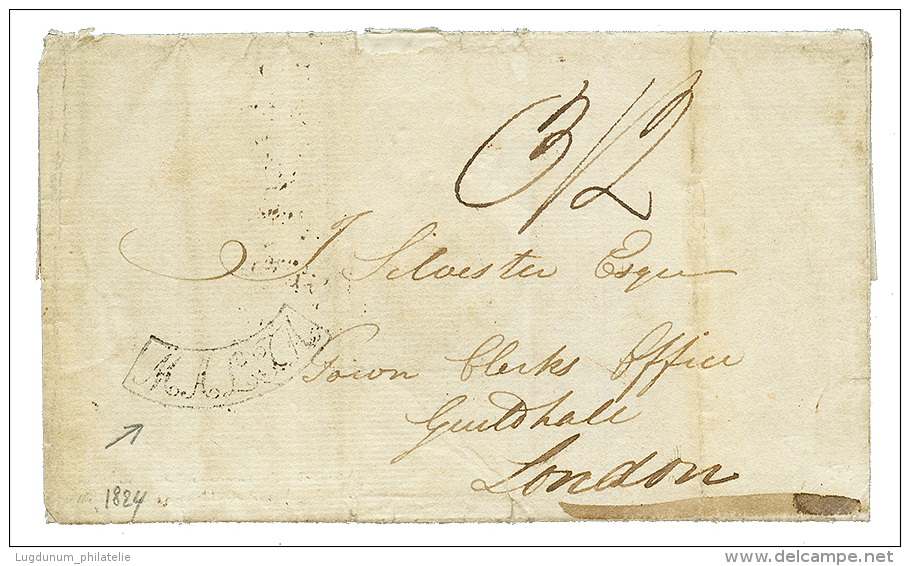 3/2
J Silvester Esqre
MALTA
Town Clerks Office
Guildhall
London
1824
Lugdunum_philatelie
www.delcampe.net